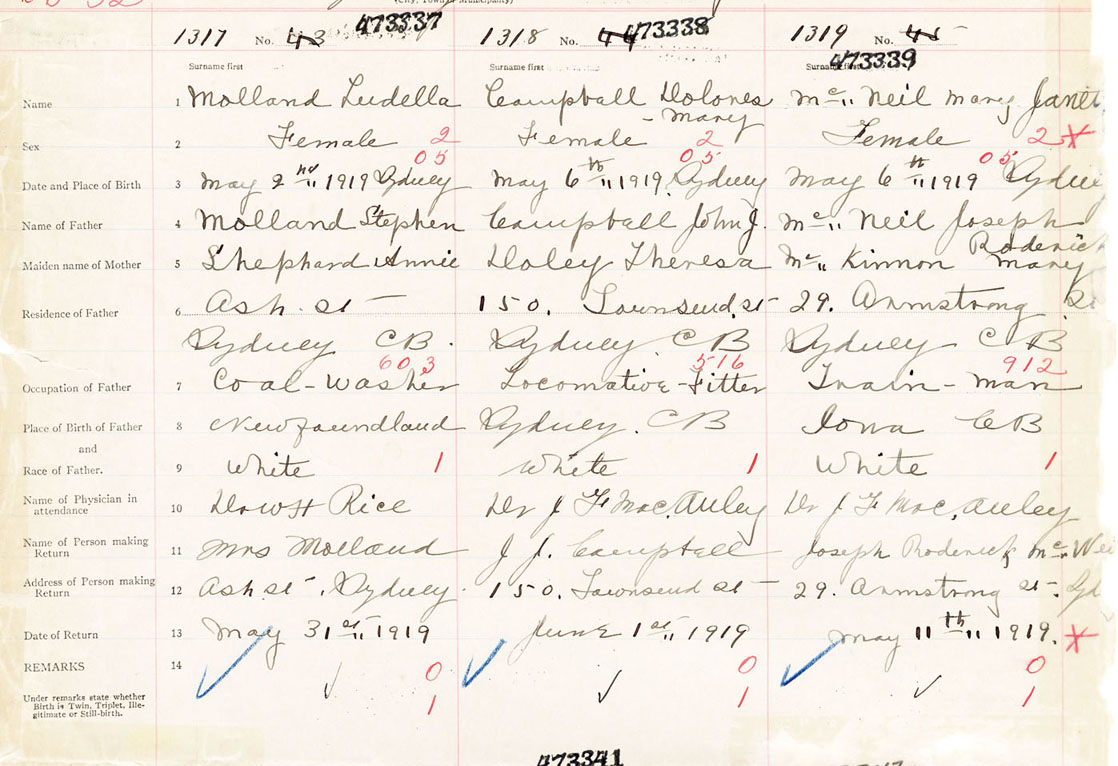 (City, Town or Municipality)
473337 473338 473339
1317 No. 43 1318 No. 44 1319 No. 45
Surname first Surname first Surname first
Name 1 Molland Ludella Campball Dolores Mary Mc Neil Mary Janet
Sex 2 Female 2 Female 2 Female 2 X
05 05 05
Date and Place of Birth 3 May 2nd 1919 Sydney May 6th 1919. Sydney May 6th 1919 Sydney
Name of Father 4 Molland Stephen Campball John J. Mc Neil Joseph Roderick
Maiden name of Mother 5 Shephard Annie Doley Theresa Mc Kinnon Mary
Residence of Father 6 Ash. st 150. Townsend. st 29. Armstrong St
Sydney CB. Sydney. CB Sydney CB
603 516 912
Occupation of Father 7 Coal-washer Locomative-Fitter Train-man
Place of Birth of Father 8 Newfoundland Sydney. CB Iona CB
and
Race of Father. 9 White 1 White 1 White 1
Name of Physician in attendance 10 Rice Dr J F MacAuley Dr J F Mac.Auley
Name of Person making Return 11 Mrs Molland J J. Campball Joseph Roderick Mc Nei
Address of Person making Return 12 Ash st. Sydney. 150. Townsend st 29. Armstrong st. Syd
Date of Return 13 May 31st 1919 June 1st 1919 May 11th 1919. X
REMARKS 14 0 0 0
Under remarks state whether Birth is Twin, Triplet, Ille-
gitimate or Still-birth. 1 1 1
473341